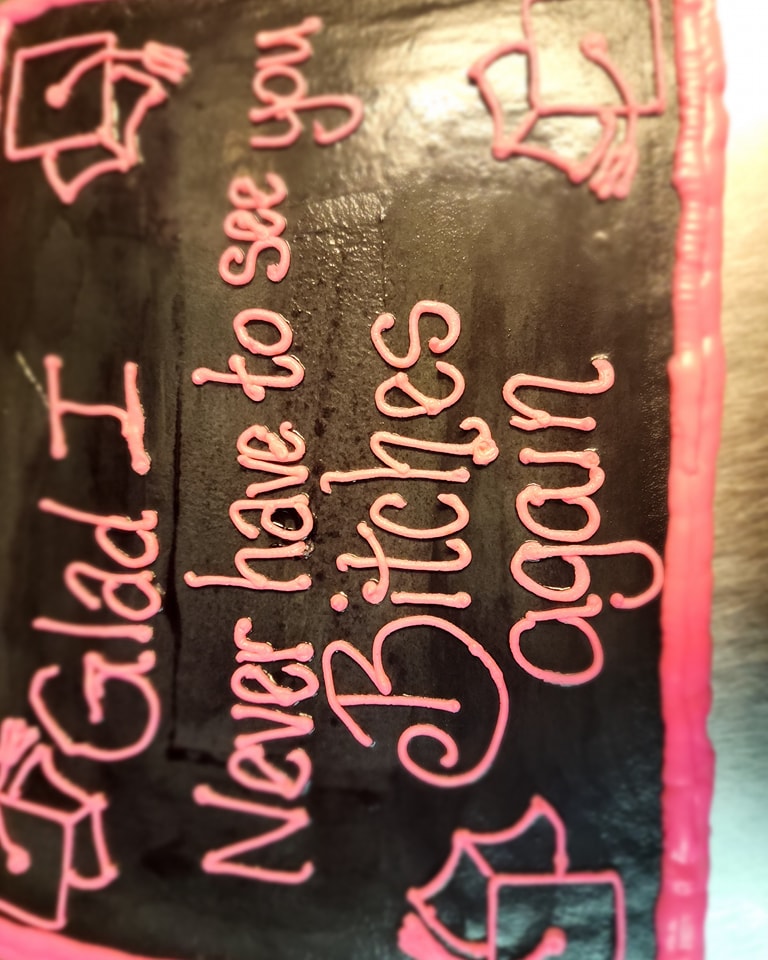 Glad I
Never have to see you
Bitches
again